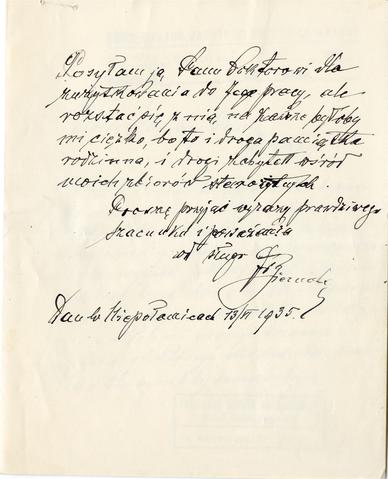 Posyłam ją Panu Doktorowi dla
zużytkowania do Jego pracy, ale
rozstać się z nią, na zawsze byłoby
mi ciężko, bo to i droga pamiątka
rodzinna, i drogi zabytek wśród
moich zbiorów starożytnych.
Proszę przyjąć wyrazy prawdziwego
szacunku i poważania
od sługi
Dan w Niepołomicach 13/VI 1935.